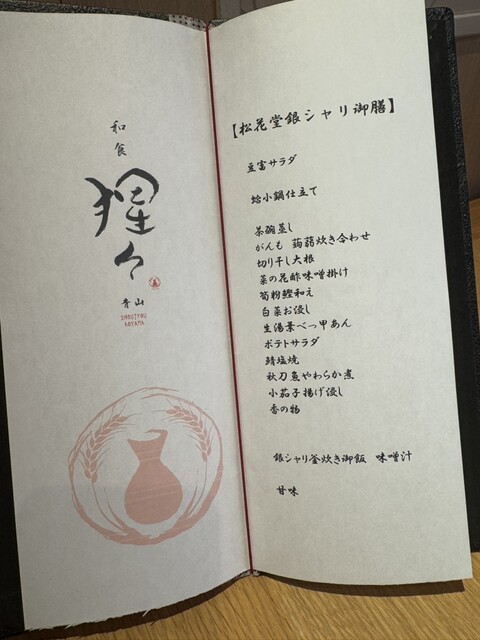 和食
猩々
青山
SHOUJYOU
AOYAMA
【松花堂銀シャリ御膳】
豆富サラダ
蛤小鍋仕立て
茶碗蒸し
がんも 蒟蒻炊き合わせ
切り干し大根
菜の花酢味噌掛け
筍粉鰹和え
白菜お浸し
生湯葉べっ甲あん
ポテトサラダ
鯖塩焼
秋刀魚やわらか煮
小茄子揚げ浸し
香の物
銀シャリ釜炊き御飯 味噌汁
甘味